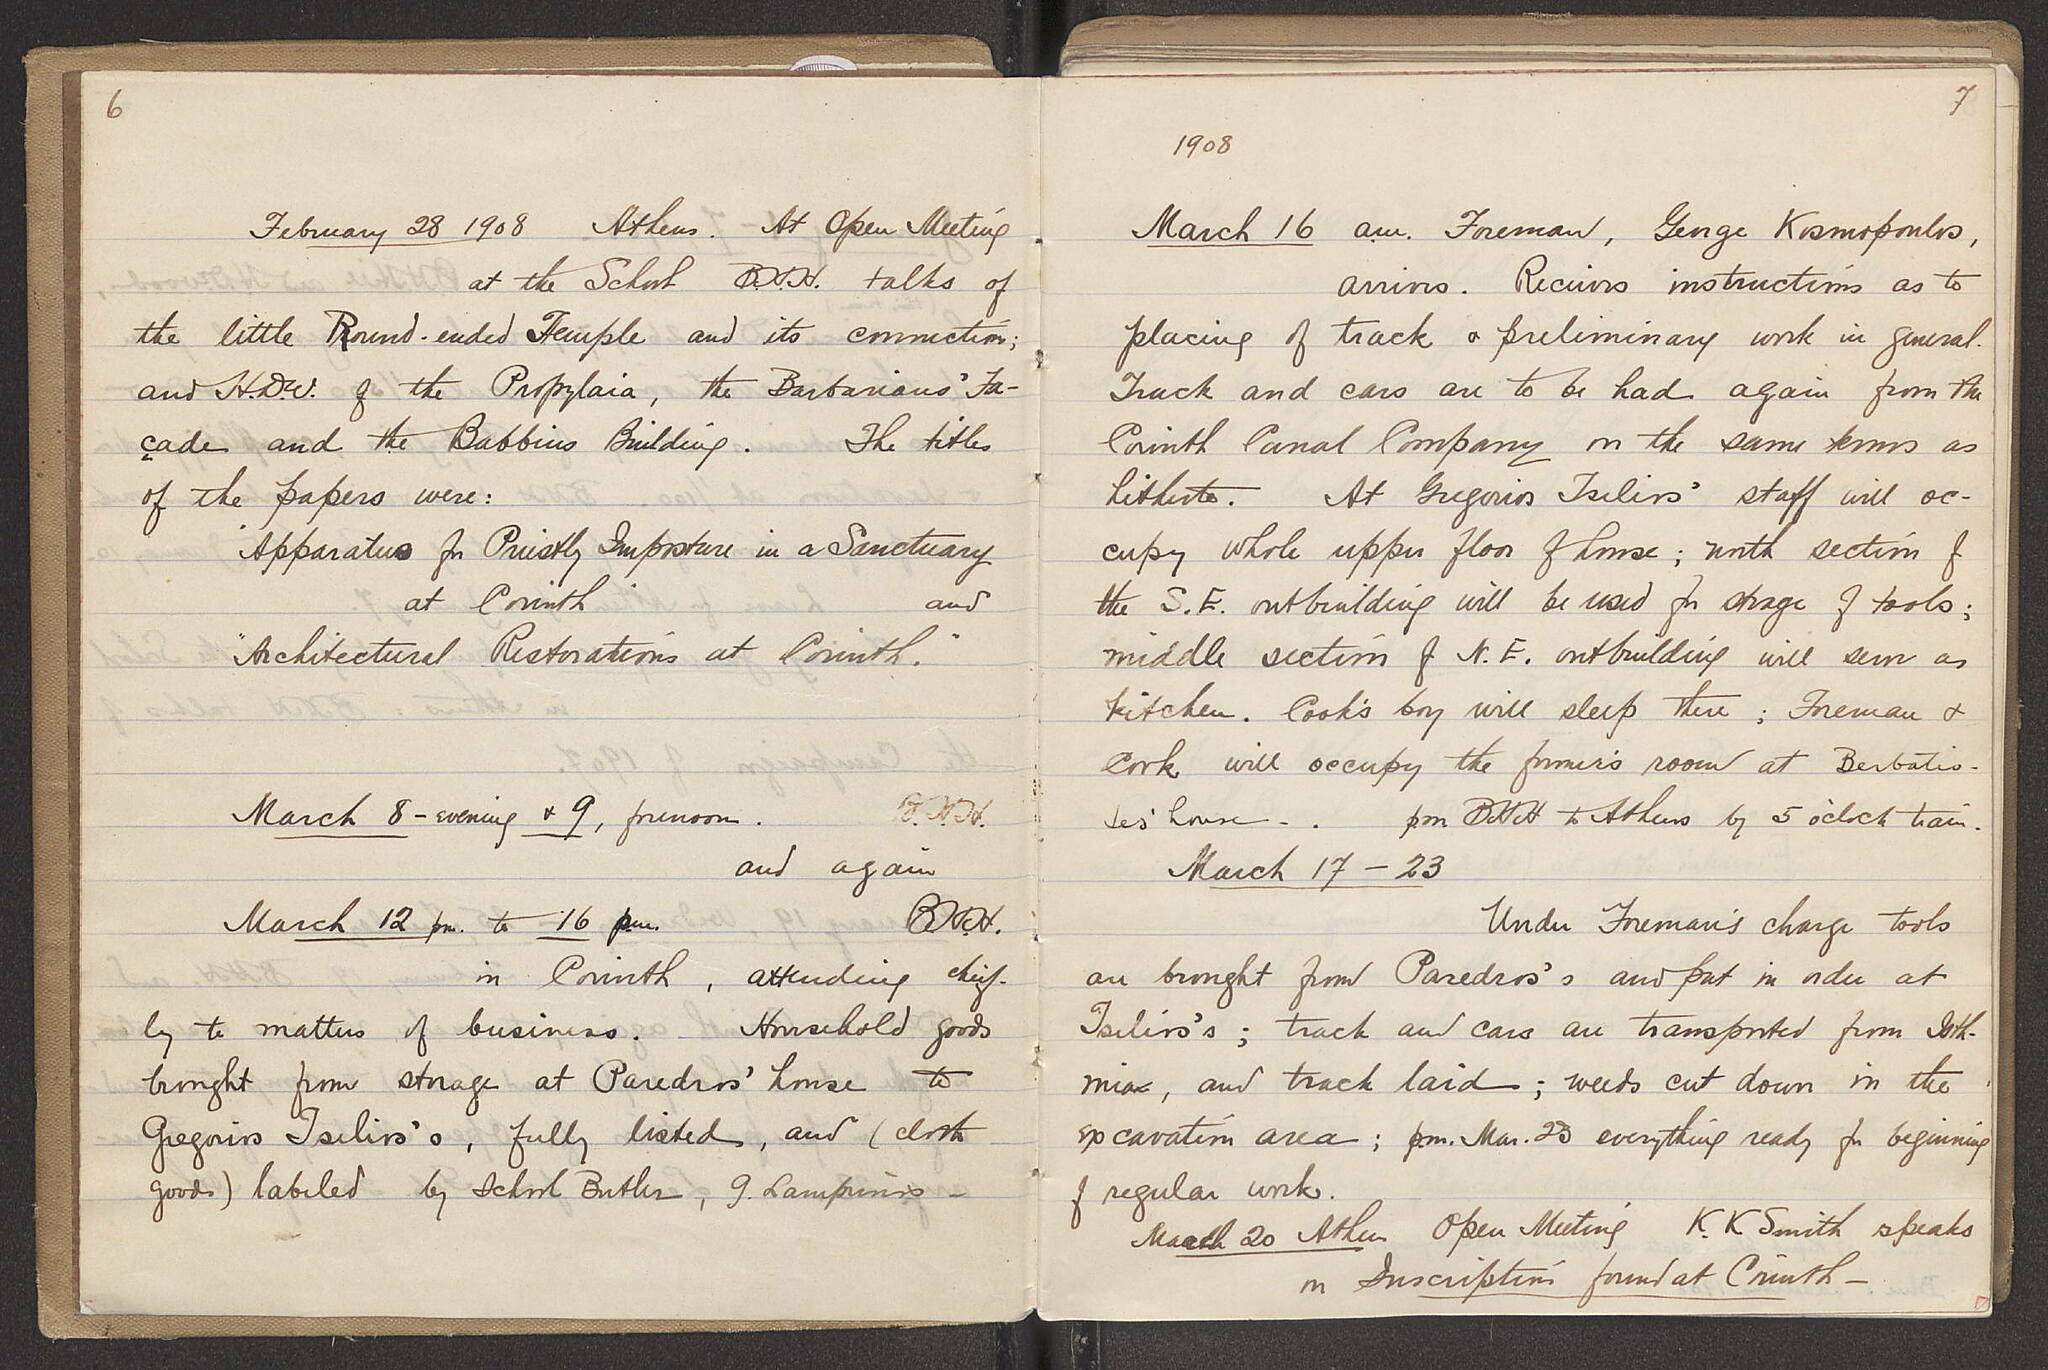 6
February 28 1908 Athens. At Open Meeting
at the School B.H.H. talks of
the little Round-ended Temple and its connections;
and H.D.W. of the Propylaia, the Barbarians' Fa-
çade and the Babbius Building. The titles
of the papers were:
"Apparatus for Priestly Imposture in a Sanctuary
at Corinth" and
"Architectural Restorations at Corinth."
March 8 - evening & 9, forenoon. B.H.H.
and again
March 12 pm. to 16 pm. B.H.H.
in Corinth, attending chief-
ly to matters of business. Household goods
brought from storage at Paredros' house to
Gregorios Tselios's, fully listed, and (cloth
goods) labeled by School Butler, G. Lampiniös –
7
1908
March 16 am. Foreman, George Kosmopoulos,
arrives. Receives instructions as to
placing of track & preliminary work in general.
Track and cars are to be had again from the
Corinth Canal Company on the same terms as
hitherto. At Gregorios Tselios' staff will oc-
cupy whole upper floor of house; north section of
the S.E. outbuilding will be used for storage of tools;
middle section of N.E. outbuilding will serve as
kitchen. Cook's boy will sleep there; Foreman &
Cook will occupy the former's room at Berbatio-
tes' house - . pm BHH to Athens by 5 o'clock train.
March 17 – 23
Under Foreman's charge tools
are brought from Paredros's and put in order at
Tselios's; track and cars are transported from Isth-
mia, and track laid; weeds cut down in the
excavation area; pm. Mar. 23 everything ready for beginning
of regular work.
March 20 Athens Open Meeting K. K Smith speaks
on Inscriptions found at Corinth –